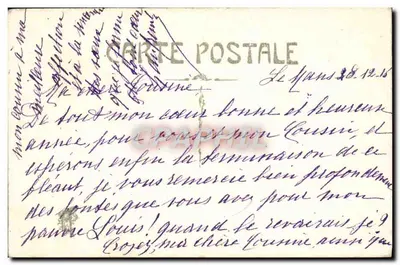 CARTE POSTALE
Le Mans 28.12.16
Ma chère Cousine
De tout mon cœur bonne et heureuse
année, pour vous et mon Cousin, et
espérons enfin la terminaison de ce
fléaut, je vous remercie bien profondement
des bontés que vous avez pour mon
pauvre Louis! quand le reverrais je?
Croyez, ma chère Cousine ainsi que
mon Cousin à ma
affection